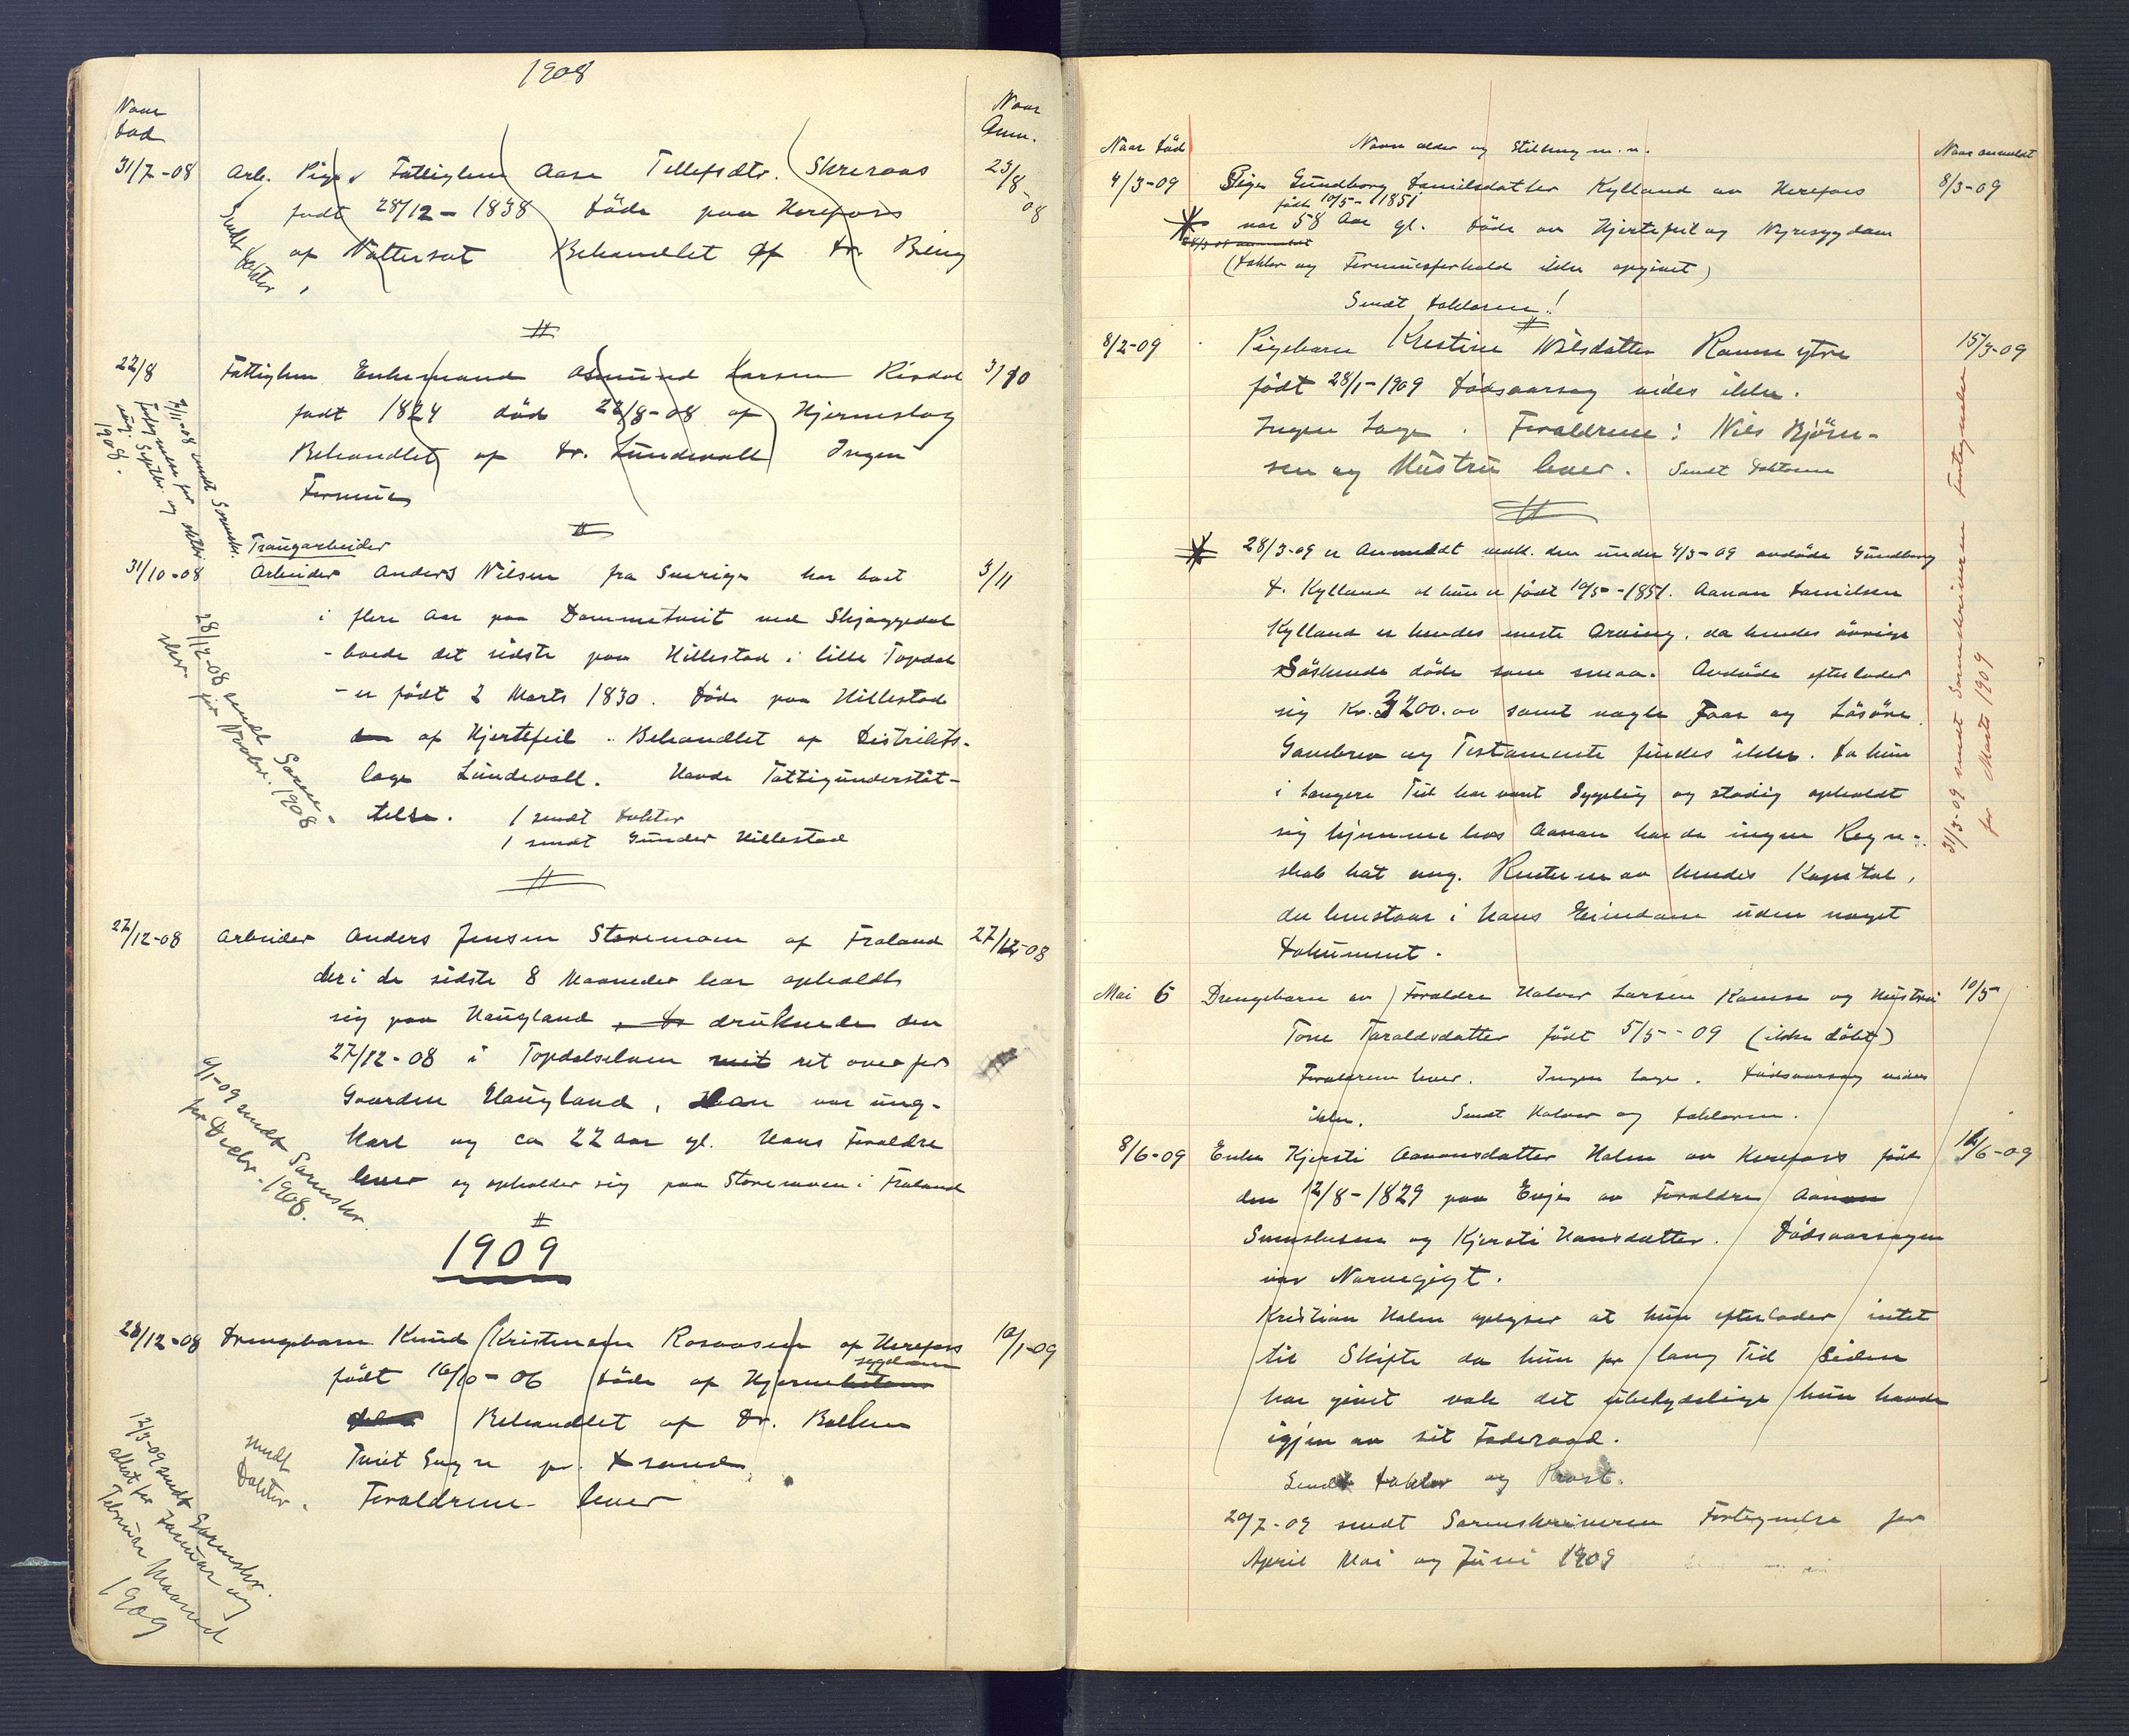 1908
Naar
Død
Naar
Anm.
31/7-08 Arb. Pige Fattiglem Aase Tellefsdtr. Skreraas 23/8-08
født 28/12-1838 døde paa Herefoss
af Vattersot Behandlet af Dr. Bing
Sendt Doktor
#
22/8 Fattiglem Enkemand Asmund Larsen Risdal 3/10
født 1824 død 22/8-08 af Hjerneslag
Behandlet af Dr. Lundevall Ingen
Formue
7/11-08 sendt Sorenskr.
Fortegnelse for
aug. Septbr. og oktbr
1908.
#
Traugarbeider
31/10-08 Arbeider Anders Nilsen fra Sverige har boet 3/11
i flere Aar paa Dommetveit ved Skjæggedal
- boede det sidste paa Hillestad i lille Topdal
- er født 2 Marts 1830. Døde paa Hillestad
af Hjertefeil. Behandlet af Distrikts-
læge Lundevall. Havde Fattigunderstøt-
telse. 1 sendt Doktor
1 sendt Gunder Hillestad
28/12-08 sendt Soren-
skr for Novbr. 1908
#
27/12-08 Arbeider Anders Jensen Storemoen af Froland 27/12-08
der i de sidste 8 Maaneder har opholdt
sig paa Haugland druknede den
27/12-08 i Topdalselven ret overfor
Gaarden Haugland, Han var ung-
karl og ca 22 Aar gl. Hans Foraldre
lever og opholder sig paa Storemoen i Froland
6/1-09 sendt Sorenskr.
for Decbr. 1908.
#
1909
28/12-08 Drengebarn Knud Kristensen Rosaasen af Herefoss 10/1-09
sygdom
født 16/10-06 døde af Hjerne
Behandlet af Dr. Balken
Tveit Sogn pr. Xsand
Foraldrene lever
sendt
Doktor.
12/3-09 sendt Sorenskr.
attest for Januar og
Februar Maaned
1909
Naar død Navn alder og Stilling m.m. Naar anmeldt
4/3-09 Pige Gundborg Danielsdatter Kylland av Herefoss 8/3-09
født 10/5-1851
* var 58 Aar gl. døde av Hjertefeil og Nyresygdom
28/3-09 anmeldt
(Doktor og Formuesforhold ikke opgivet)
Sendt Doktoren!
#
8/2-09 Pigebarn Kristine Nilsdatter Ramse ytre 15/3-09
født 28/1-1909 Dødsaarsag vides ikke.
Ingen Læge. Foraldrene: Nils Bjørn-
sen og Hustru lever. Sendt Doktoren
#
* 28/3-09 er Anmeldt vedk. den under 4/3-09 avdøde Gundborg
D. Kylland at hun er født 10/5-1851. Aanon Danielsen
Kylland er hendes eneste Arving, da hendes øvrige
Søskende døde som smaa. Avdøde efterlader
sig Kr. 3200.00 samt nogle Faar og Løsøre.
Gavebrev og Testamente findes ikke. Da hun
i længere Tid har vært Sygelig og stadig opholdt
sig hjemme hos Aanon har de ingen Regn-
skab hat ang. Renterne av hendes Kapital,
der henstaar i Hans Eiendom uden noget
Dokument.
31/3-09 sendt Sorenskriveren Fortegnelse
for Marts 1909
Mai 6 Drengebarn av Foraldre Halvor Larsen Ramse og Hustru 10/5
Tone Taraldsdatter født 5/5-09 (ikke døbt)
Foraldrene lever. Ingen Læge. Dødsaarsag vides
ikke. Sendt Halvor og Doktoren.
8/6-09 Enke Kjersti Aanonsdatter Holm av Herefoss født 12/6-09
den 12/8-1829 paa Evje av Foraldre Aanon
og Kjersti Hansdatter. Dødsaarsagen
var Nervegigt.
Kristian Holm oplyser at hun efterlader intet
til Skifte da hun for lang Tid siden
har givet væk det ubetydelige hun havde
igjen av sit Føderaad.
Sendt Doktor og Prost.
20/7-09 sendt Sorenskriveren Fortegnelse for
April Mai og Juni 1909